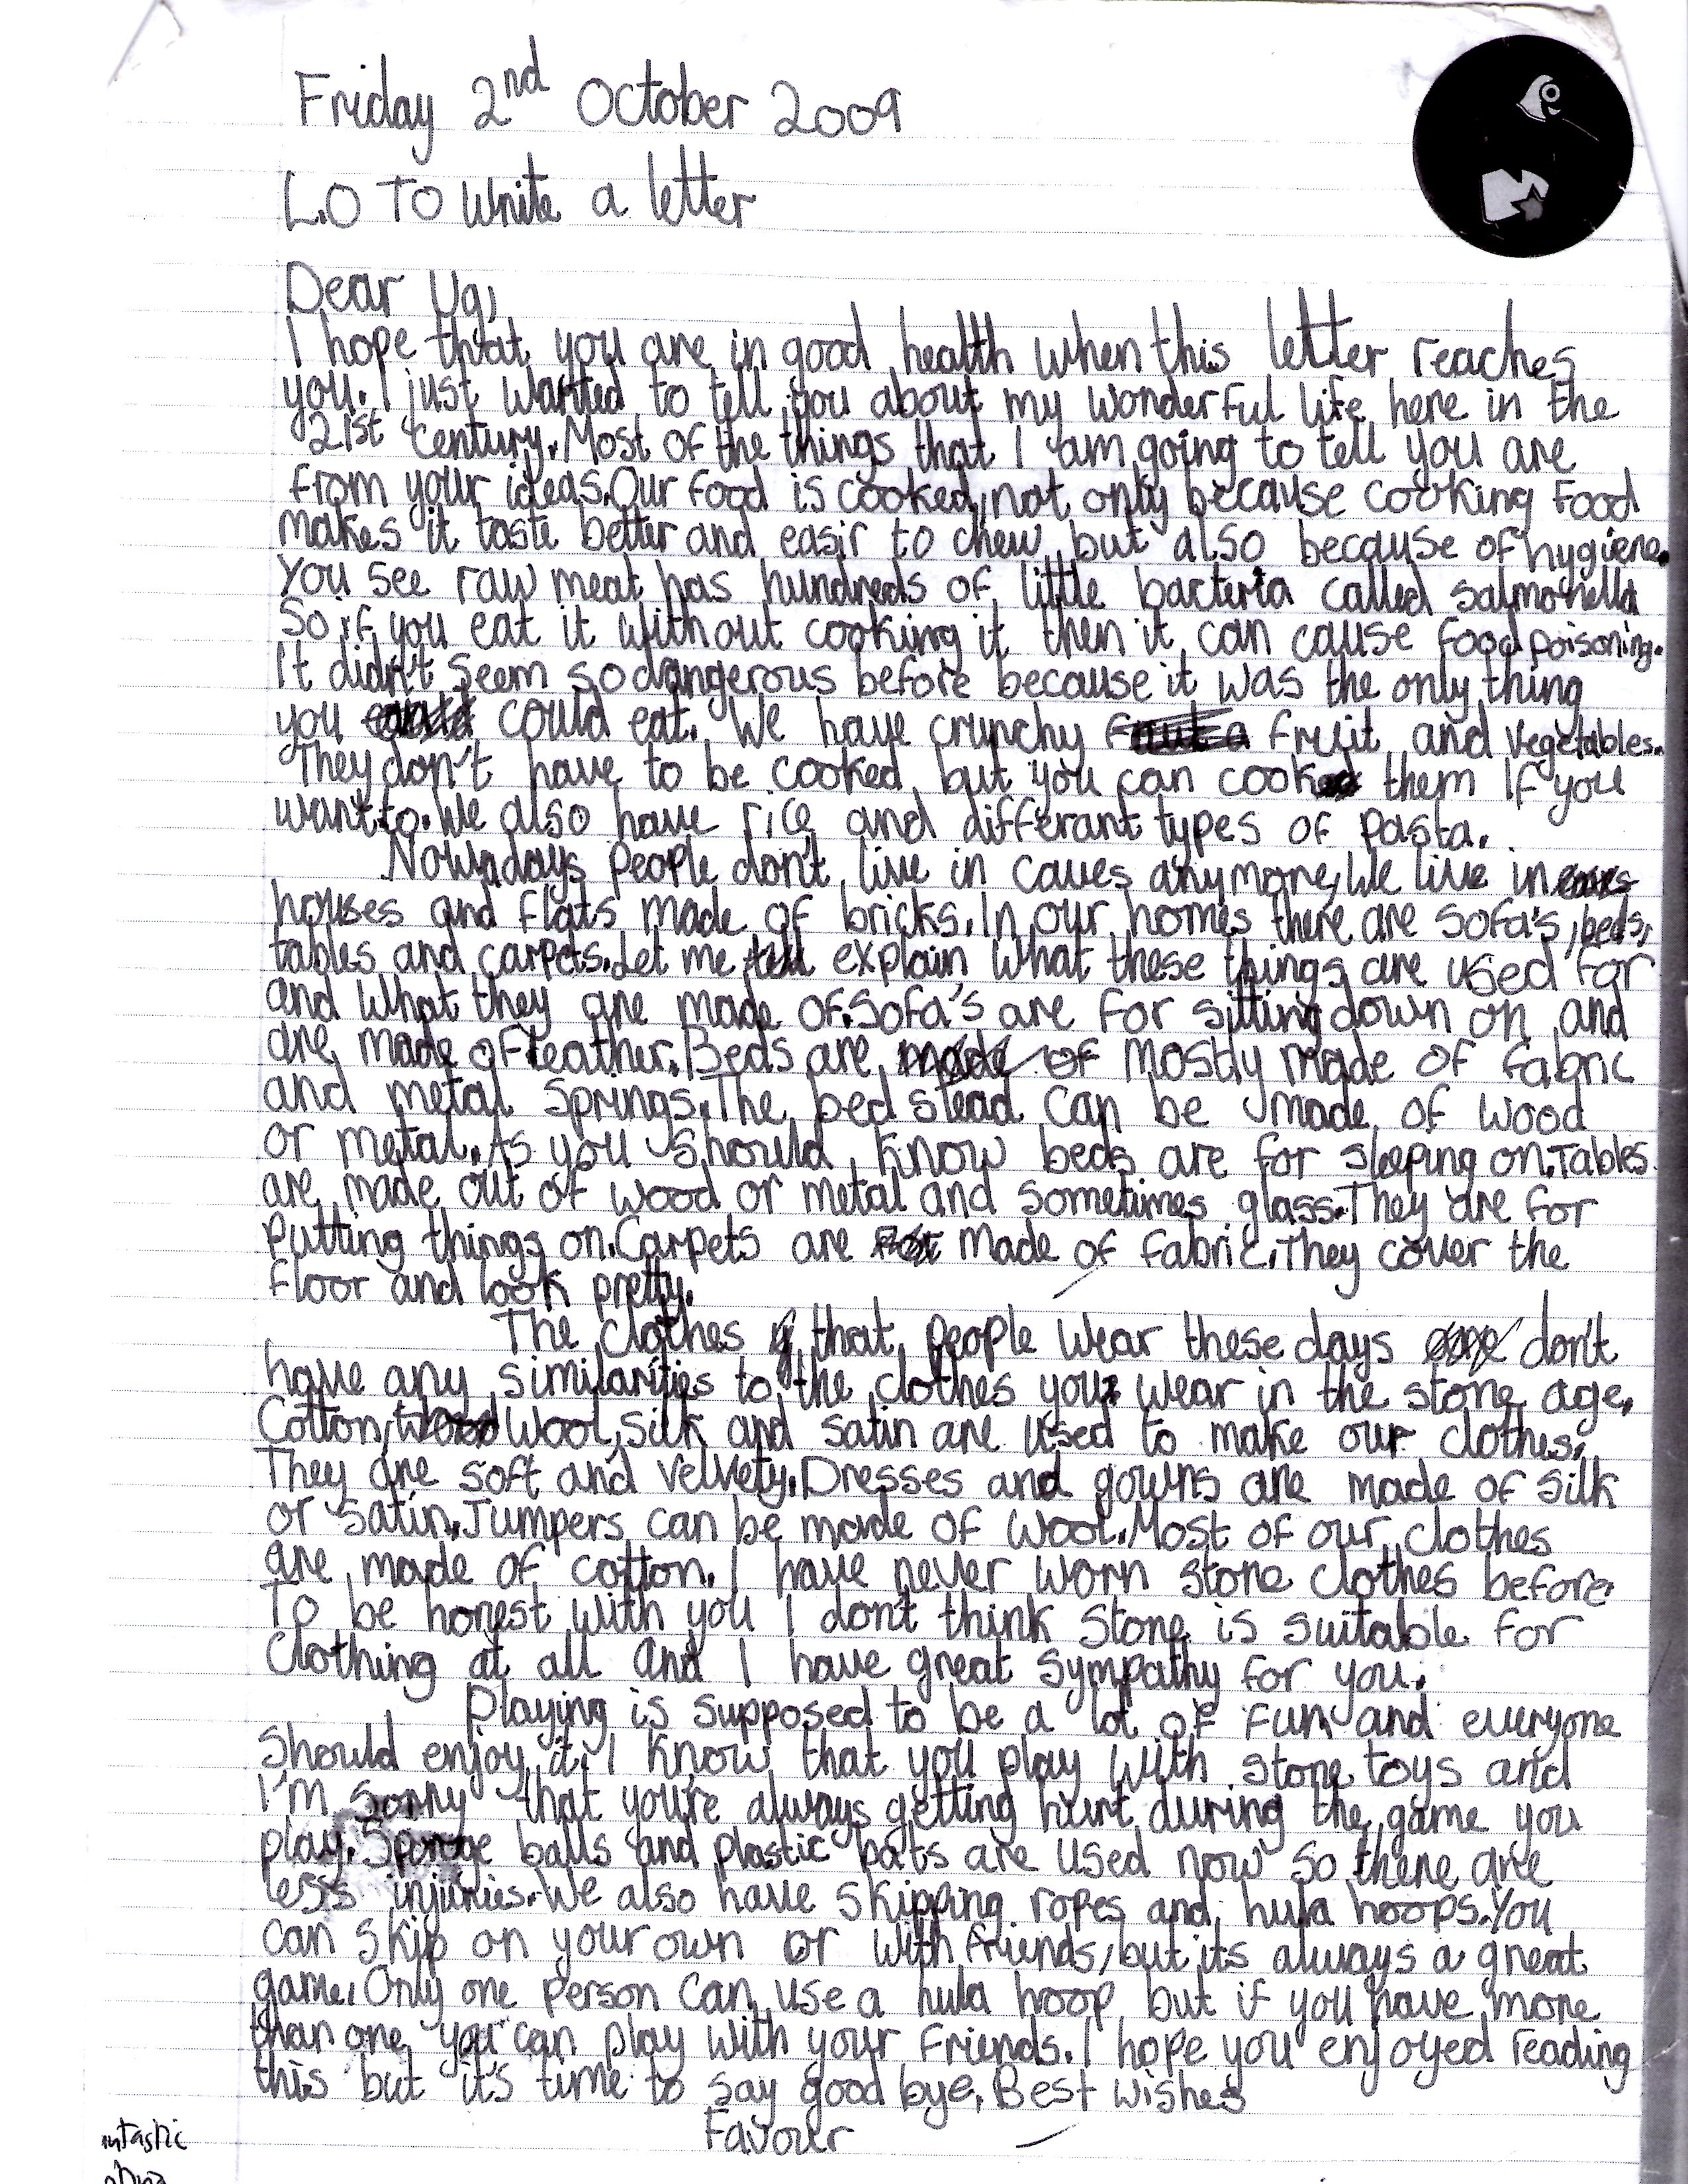 Friday 2nd October 2009
L.O To write a letter
Dear Ug,
I hope that you are in good health when this letter reaches
you. I just wanted to tell you about my wonderful life here in the
21st century. Most of the things that I am going to tell you are
from your ideas. Our food is cooked, not only because cooking food
makes it taste better and easir to chew but also because of hygiene.
You see raw meat has hundreds of little bacteria called salmonella
So if you eat it without cooking it then it can cause food poisoning.
It didn't seem so dangerous before because it was the only thing
you could eat. We have crunchy fruit and vegetables.
They don't have to be cooked but you can cook them if you
want to. We also have rice and differant types of pasta.
Nowadays people don't live in caves anymore, we live in
houses and flats made of bricks. In our homes there are sofa's, beds,
tables and carpets. Let me explain what these things are used for
and what they are made of. Sofa's are for sitting down on and
are made of leather. Beds are mostly made of fabric
and metal springs. The bed stead can be made of wood
or metal. As you should know beds are for sleeping on. Tables
are made out of wood or metal and sometimes glass. They are for
putting things on. Carpets are made of fabric. They cover the
floor and look pretty.
The clothes that people wear these days don't
have any similarities to the clothes you wear in the stone age.
Cotton, wool, silk and satin are used to make our clothes.
They are soft and velvety. Dresses and gowns are made of silk
or satin. Jumpers can be made of wool. Most of our clothes
are made of cotton. I have never worn stone clothes before.
To be honest with you I don't think stone is suitable for
clothing at all and I have great sympathy for you.
Playing is supposed to be a lot of fun and everyone
should enjoy it. I know that you play with stone toys and
I'm sorry that you're always getting hurt during the game you
play. Sponge balls and plastic bats are used now so there are
less injuries. We also have skipping ropes and hula hoops. You
can skip on your own or with friends, but its always a great
game. Only one person can use a hula hoop but if you have more
than one you can play with your friends. I hope you enjoyed reading
this but it's time to say good bye. Best wishes
Favour